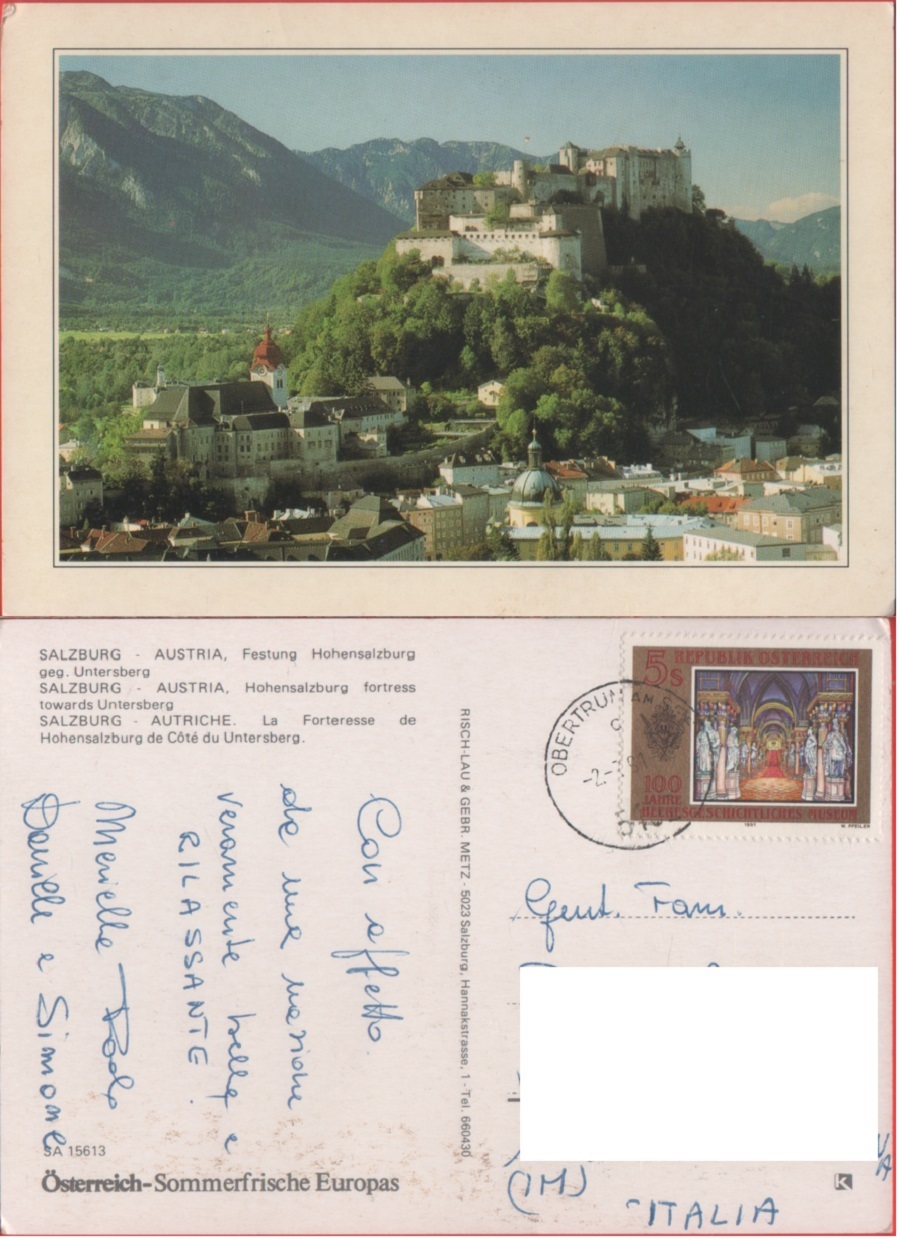 SALZBURG - AUSTRIA, Festung Hohensalzburg
geg. Untersberg
SALZBURG - AUSTRIA, Hohensalzburg fortress
towards Untersberg
SALZBURG - AUTRICHE. La Forteresse de
Hohensalzburg de Côté du Untersberg.
5s REPUBLIK ÖSTERREICH
100
JAHRE
HEERESGESCHICHTLICHES MUSEUM
1991
W. PFEILER
OBERTRUM AM
-2.
RISCH-LAU & GEBR. METZ - 5023 Salzburg, Hannakstrasse, 1 - Tel. 660430
Con affetto.
da una nazione
veramente bella e
RILASSANTE.
Mirielle Paolo
Danielle e Simone
Gent. Fam.
(IM)
ITALIA
SA 15613
Österreich-Sommerfrische Europas
K